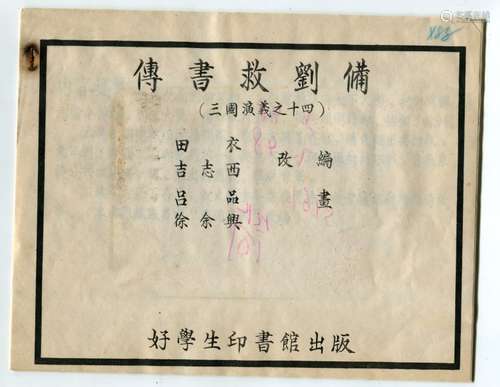 傳書救劉備
(三國演義之十四)
田衣
吉志西 改編
呂品
徐余興 畫
好學生印書館出版